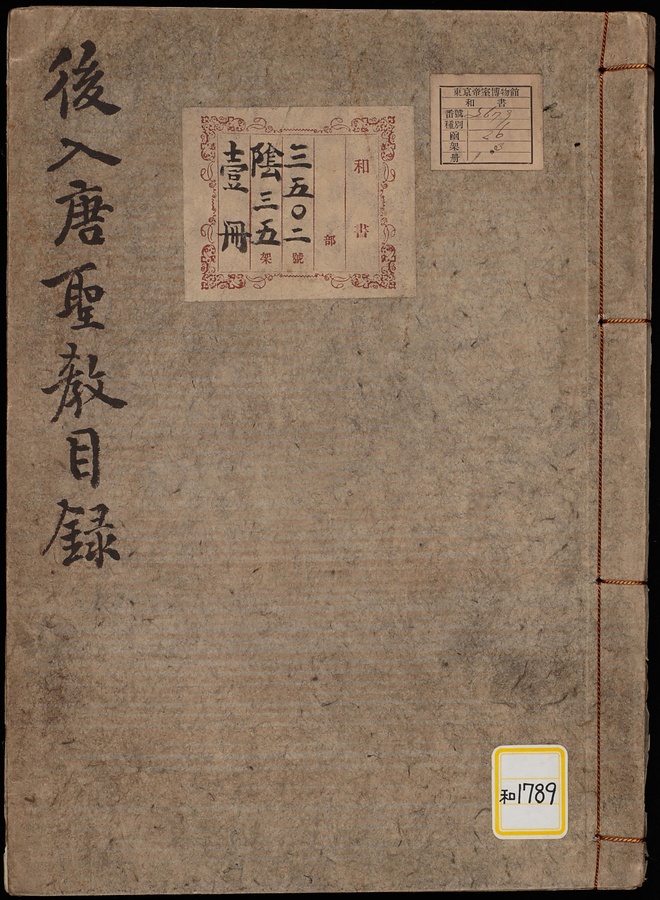 後入唐聖教目録
和書
部
三五〇二號
陰三五架
壹冊
東京帝室博物館
和書
番號
種別
函
架
册
和1789